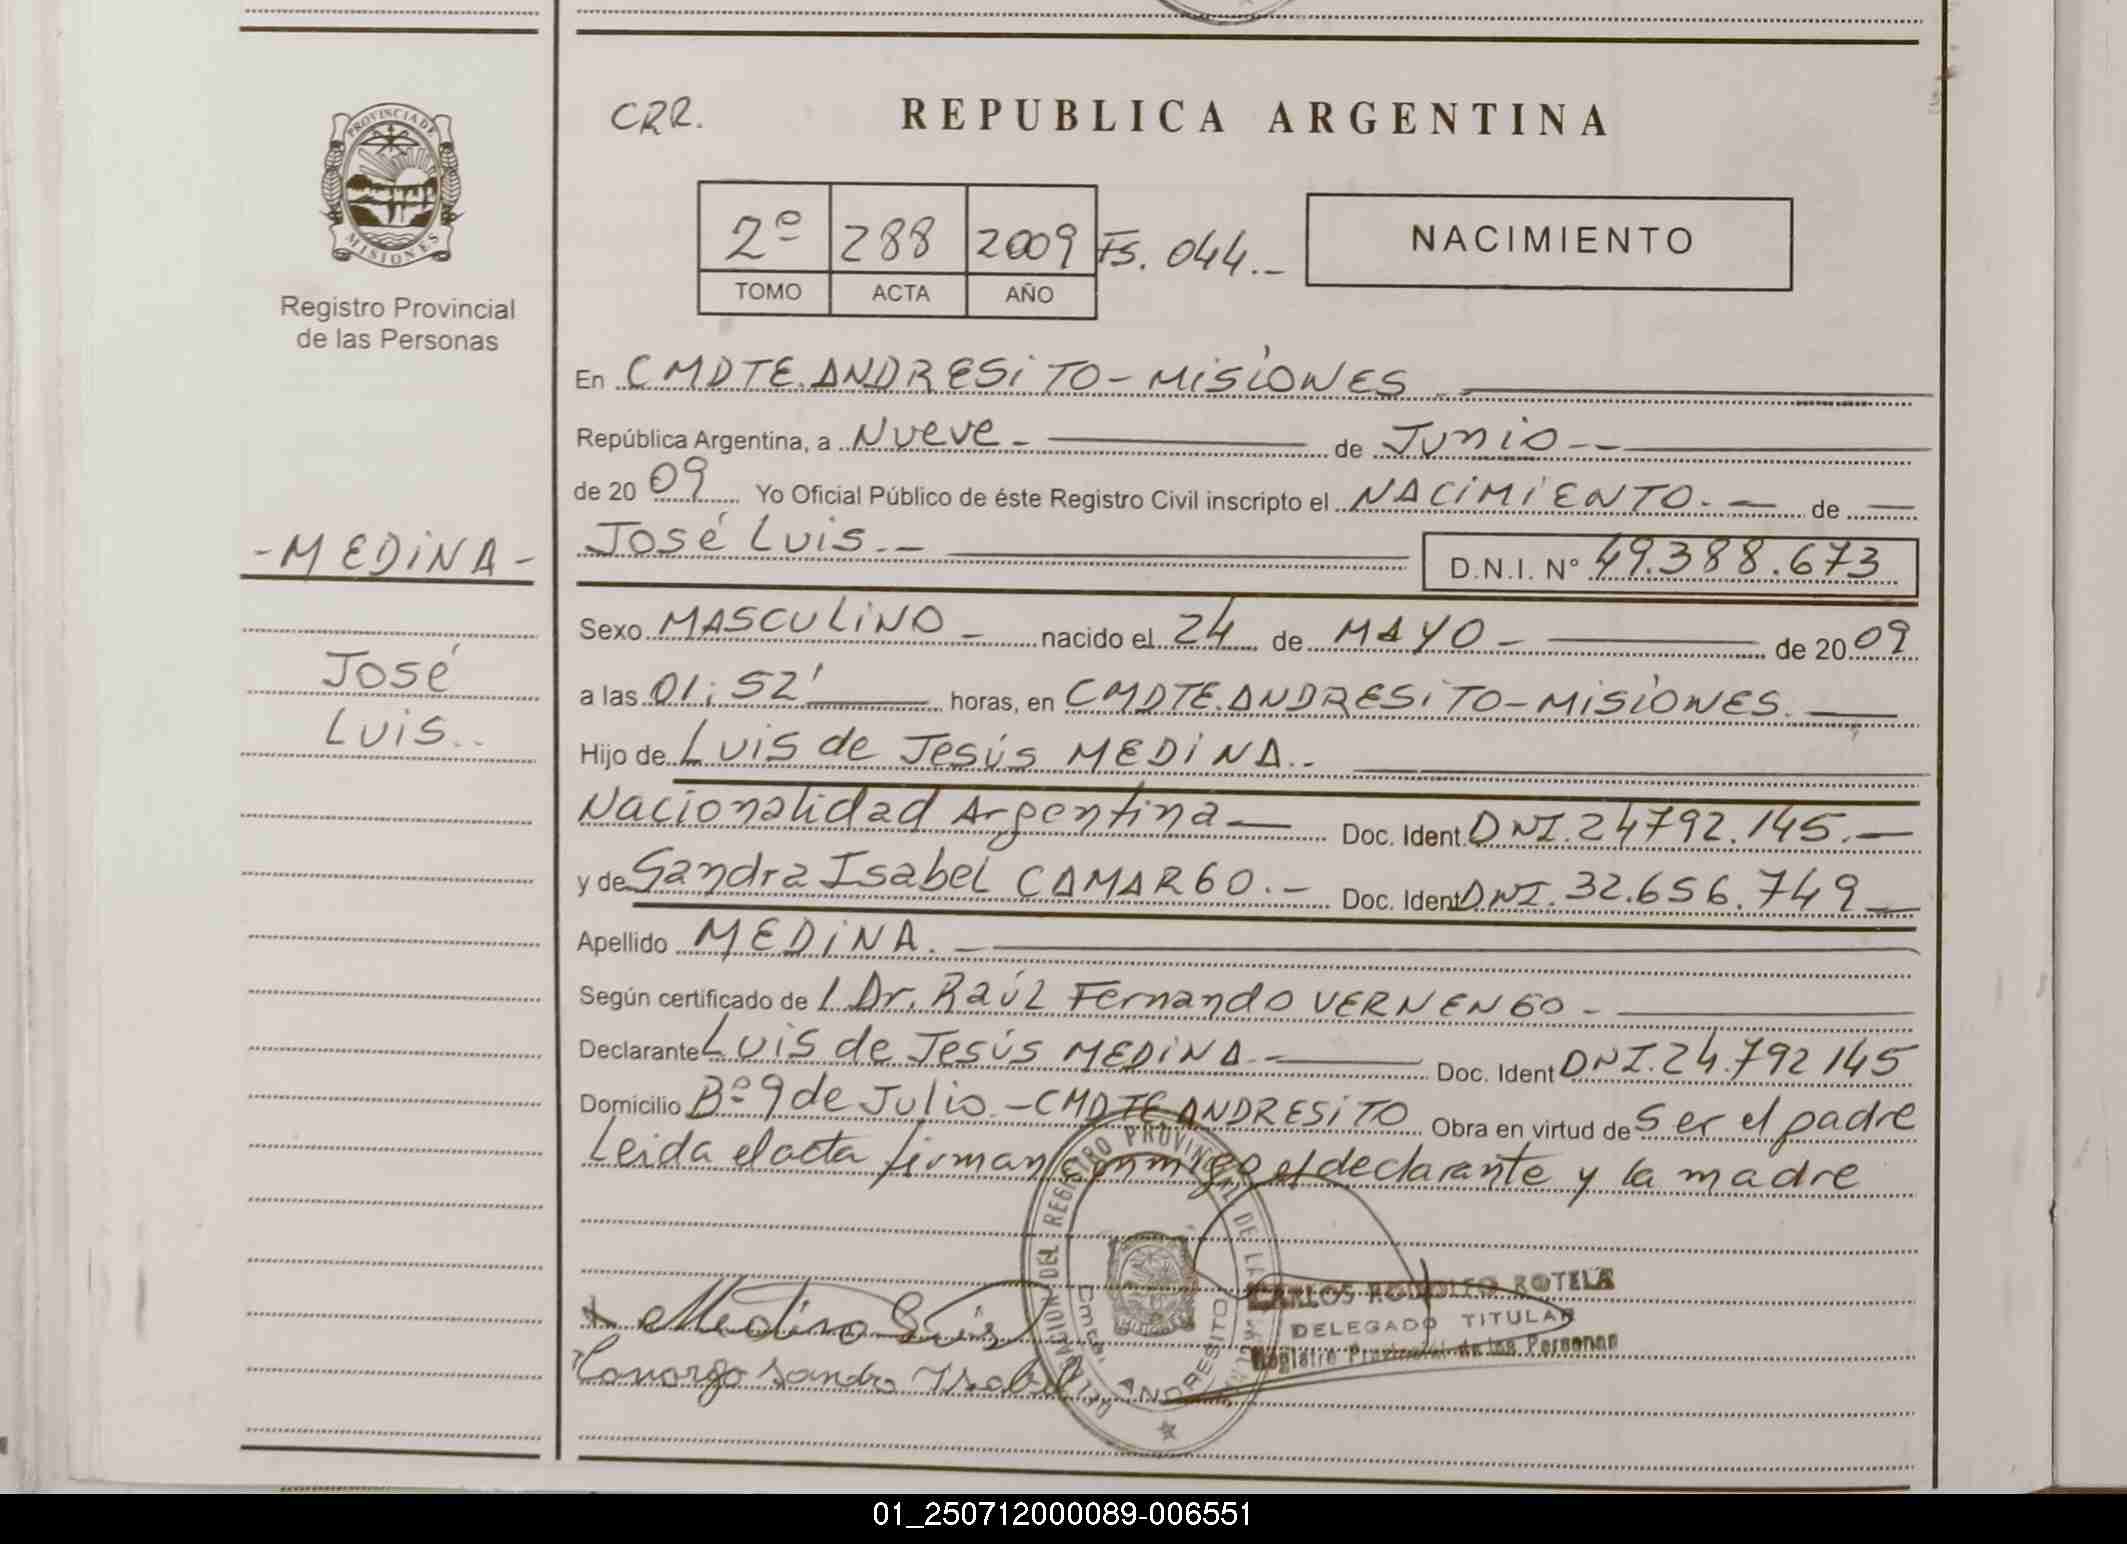 PROVINCIA DE
MISIONES
Registro Provincial
de las Personas
-MEDINA-
José
Luis..
CRR.
REPUBLICA ARGENTINA
2º 288 2009 Fs. 044.-
TOMO ACTA AÑO
NACIMIENTO
En CMDTE. ANDRESITO-MISIONES
República Argentina, a Nueve- de Junio--
de 2009 Yo Oficial Público de éste Registro Civil inscripto el NACIMIENTO.- de
José Luis.-
D.N.I. N° 49.388.673
Sexo MASCULINO- nacido el 24 de MAYO- de 2009
a las 01:52' horas, en CMDTE. ANDRESITO-MISIONES.
Hijo de Luis de Jesús MEDINA.-
Nacionalidad Argentina Doc. Ident. DNI. 24792.145.-
y de Sandra Isabel CAMARGO.- Doc. Ident DNI. 32.656.749
Apellido MEDINA.-
Según certificado de l Dr. Raúl Fernando VERNENGO-
Declarante Luis de Jesús MEDINA- Doc. Ident DNI. 24.792 145
Domicilio Bº 9 de Julio.-CMDTE ANDRESITO Obra en virtud de Ser el padre
Leida el acta firman conmigo el declarante y la madre
DELEGACION DEL REGISTRO PROVINCIAL DE LAS
ANDRESITO
CARLOS RODOLFO ROTELA
DELEGADO TITULAR
Registro Provincial de las Personas
Medina Luis
Camargo Sandra Isabel
01_250712000089-006551